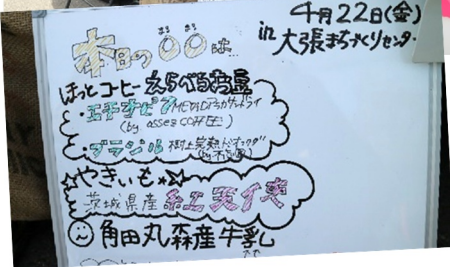 4月22日(金)
in 大張まちづくりセンター
まる まる
本日の〇〇は…
ほっとコーヒー えらべる
・エチオピア
(by assez COFFEE)
・ブラジル 樹上完熟
☆やきいも☆
茨城県産 紅天使
角田丸森産牛乳